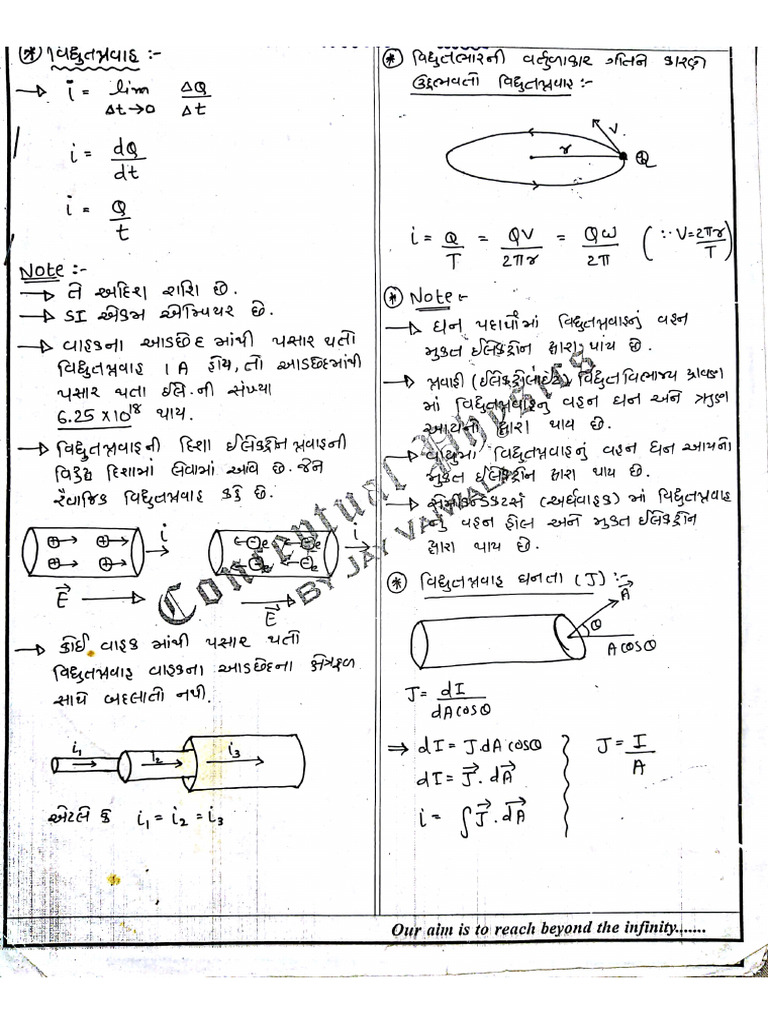 * વિદ્યુતપ્રવાહ :-
→ i = lim ΔQ/Δt
Δt→0
i = dQ/dt
i = Q/t
Note :-
→ તે અદિશ રાશિ છે.
→ SI એકમ એમ્પિયર છે.
→ વાહકના આડછેદ માંથી પસાર થતો
વિદ્યુતપ્રવાહ 1 A હોય, તો આડછેદમાંથી
પસાર થતા ઈલે.ની સંખ્યા
6.25 x 10^18 થાય.
→ વિદ્યુતપ્રવાહની દિશા ઈલેક્ટ્રોન પ્રવાહની
વિરુદ્ધ દિશામાં લેવામાં આવે છે. જેને
રૈવાજિક વિદ્યુતપ્રવાહ કહે છે.
i i
E E
→ કોઈ વાહક માંથી પસાર થતો
વિદ્યુતપ્રવાહ વાહકના આડછેદના ક્ષેત્રફળ
સાથે બદલાતો નથી.
i₁ i₂ i₃
એટલે કે i₁ = i₂ = i₃
* વિદ્યુતભારની વર્તુળાકાર ગતિને કારણે
ઉદ્દભવતો વિદ્યુતપ્રવાહ :-
V
r Q
i = Q/T = QV/2πr = Qω/2π (∵ V = 2πr/T)
* Note :-
→ ઘન પદાર્થોમાં વિદ્યુતપ્રવાહનું વહન
મુક્ત ઈલેક્ટ્રોન દ્વારા થાય છે.
→ પ્રવાહી (ઈલેક્ટ્રોલાઈટ) વિદ્યુતવિભાજ્ય દ્રાવણ
માં વિદ્યુતપ્રવાહનું વહન ઘન અને ઋણ
આયનો દ્વારા થાય છે.
→ વાયુમાં વિદ્યુતપ્રવાહનું વહન ઘન આયનો
મુક્ત ઈલેક્ટ્રોન દ્વારા થાય છે.
→ સેમીકન્ડક્ટર્સ (અર્ધવાહક) માં વિદ્યુતપ્રવાહ
નું વહન હોલ અને મુક્ત ઈલેક્ટ્રોન
દ્વારા થાય છે.
* વિદ્યુતપ્રવાહ ઘનતા (J) :-
A
θ
A cosθ
J = dI/dA cosθ
⇒ dI = J dA cosθ J = I/A
dI = J · dA
i = ∫ J · dA
Conceptual Physics
Our aim is to reach beyond the infinity.......